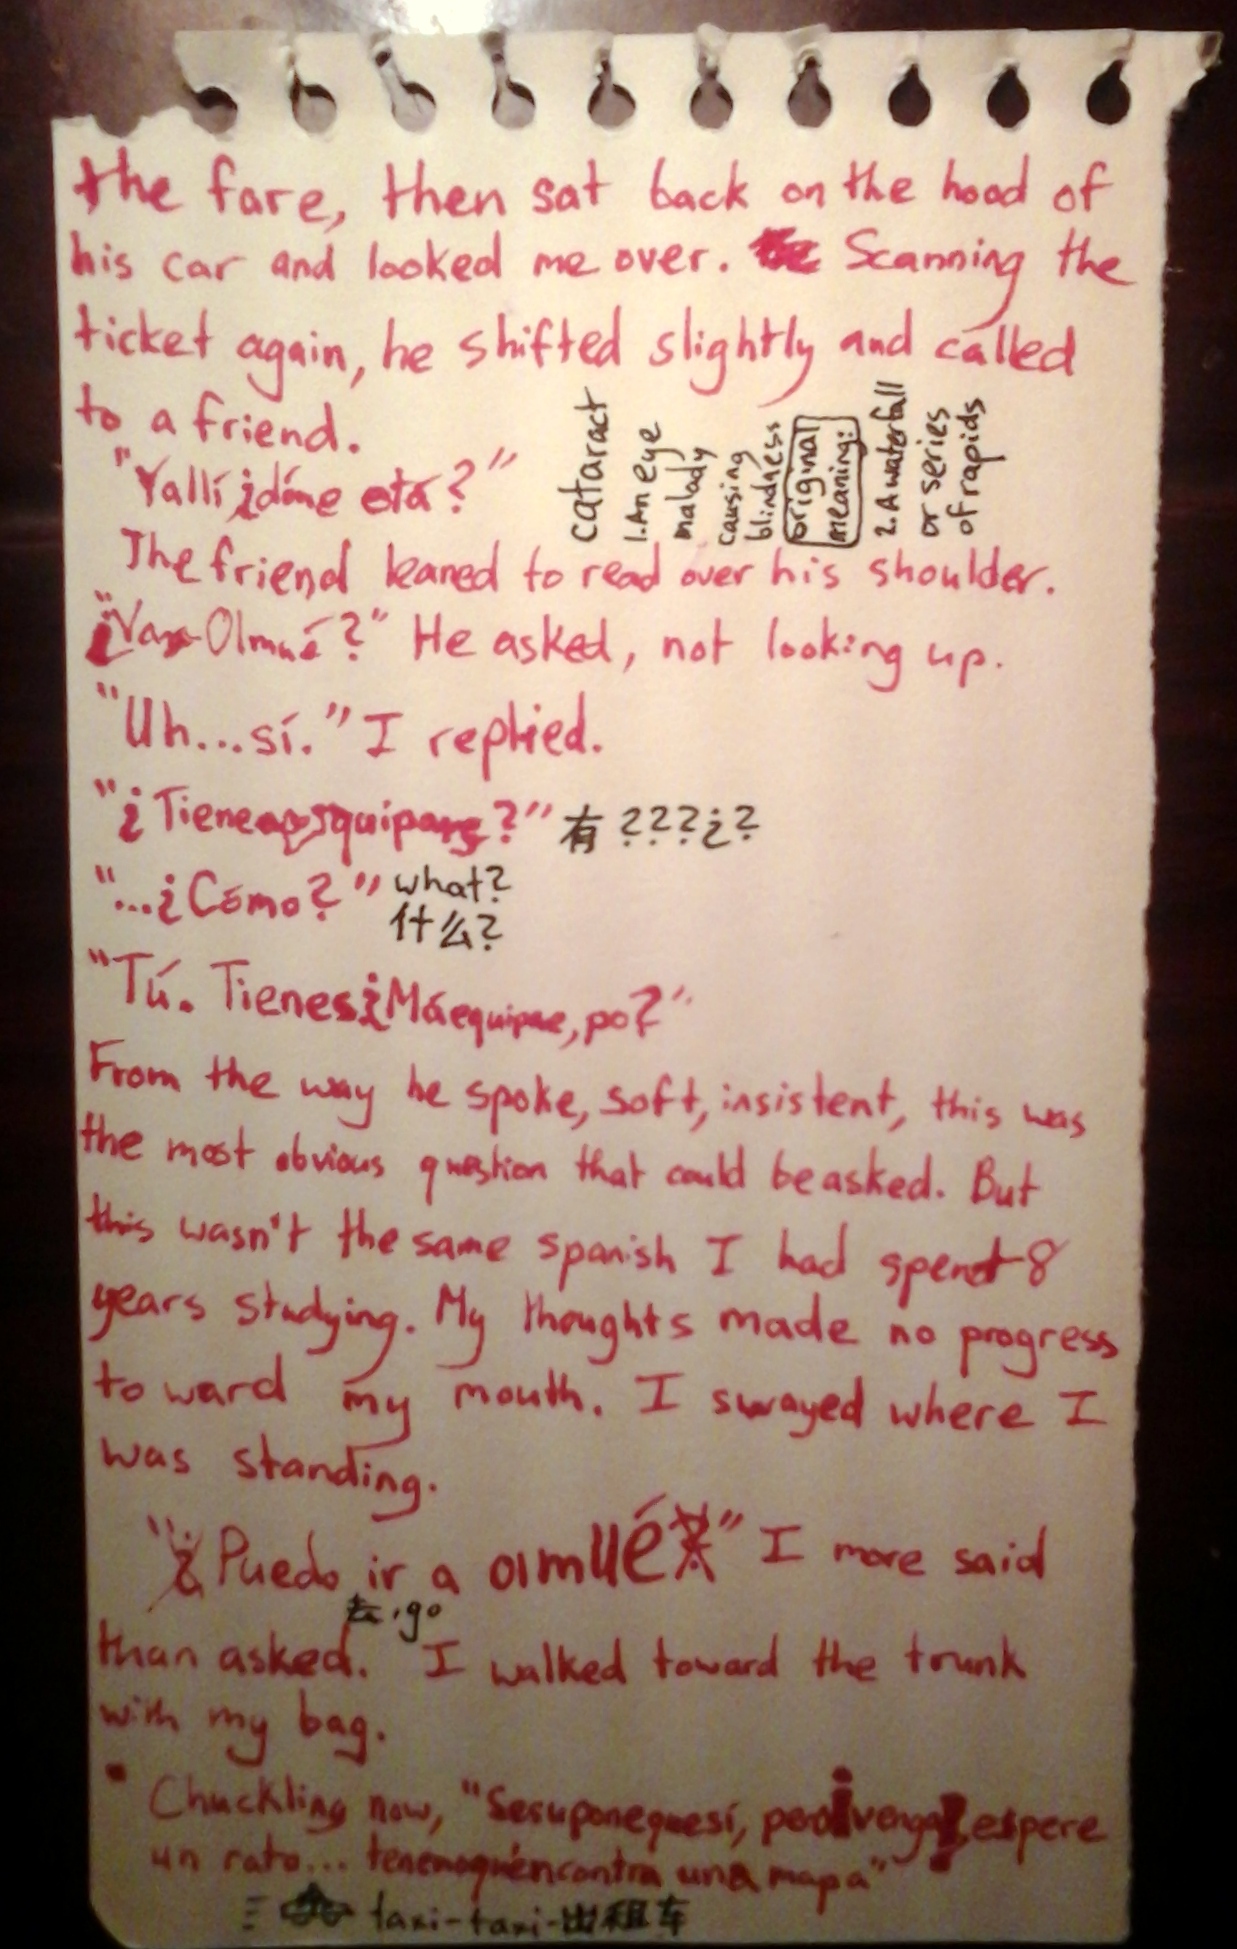 the fare, then sat back on the hood of
his car and looked me over. Scanning the
ticket again, he shifted slightly and called
to a friend.
cataract
1. An eye
malady
causing
blindness
original
meaning:
2. A waterfall
or series
of rapids
"Yallí ¿dóne etá?"
The friend leaned to read over his shoulder.
Olmué?" He asked, not looking up.
"Uh...sí." I replied.
"¿ ?" 有 ???¿?
"...¿Cómo?" what?
什么?
"Tú. Tienes¿Máequipae, po?"
From the way he spoke, soft, insistent, this was
the most obvious question that could be asked. But
this wasn't the same spanish I had spent 8
years studying. My thoughts made no progress
toward my mouth. I swayed where I
was standing.
"¿Puedo ir a olmué" I more said
去.go
than asked. I walked toward the trunk
with my bag.
Chuckling now, "Sesuponequesí, pero¡venga!, espere
un rato... tenemoquéncontra una mapa"
taxi-taxi-出租车